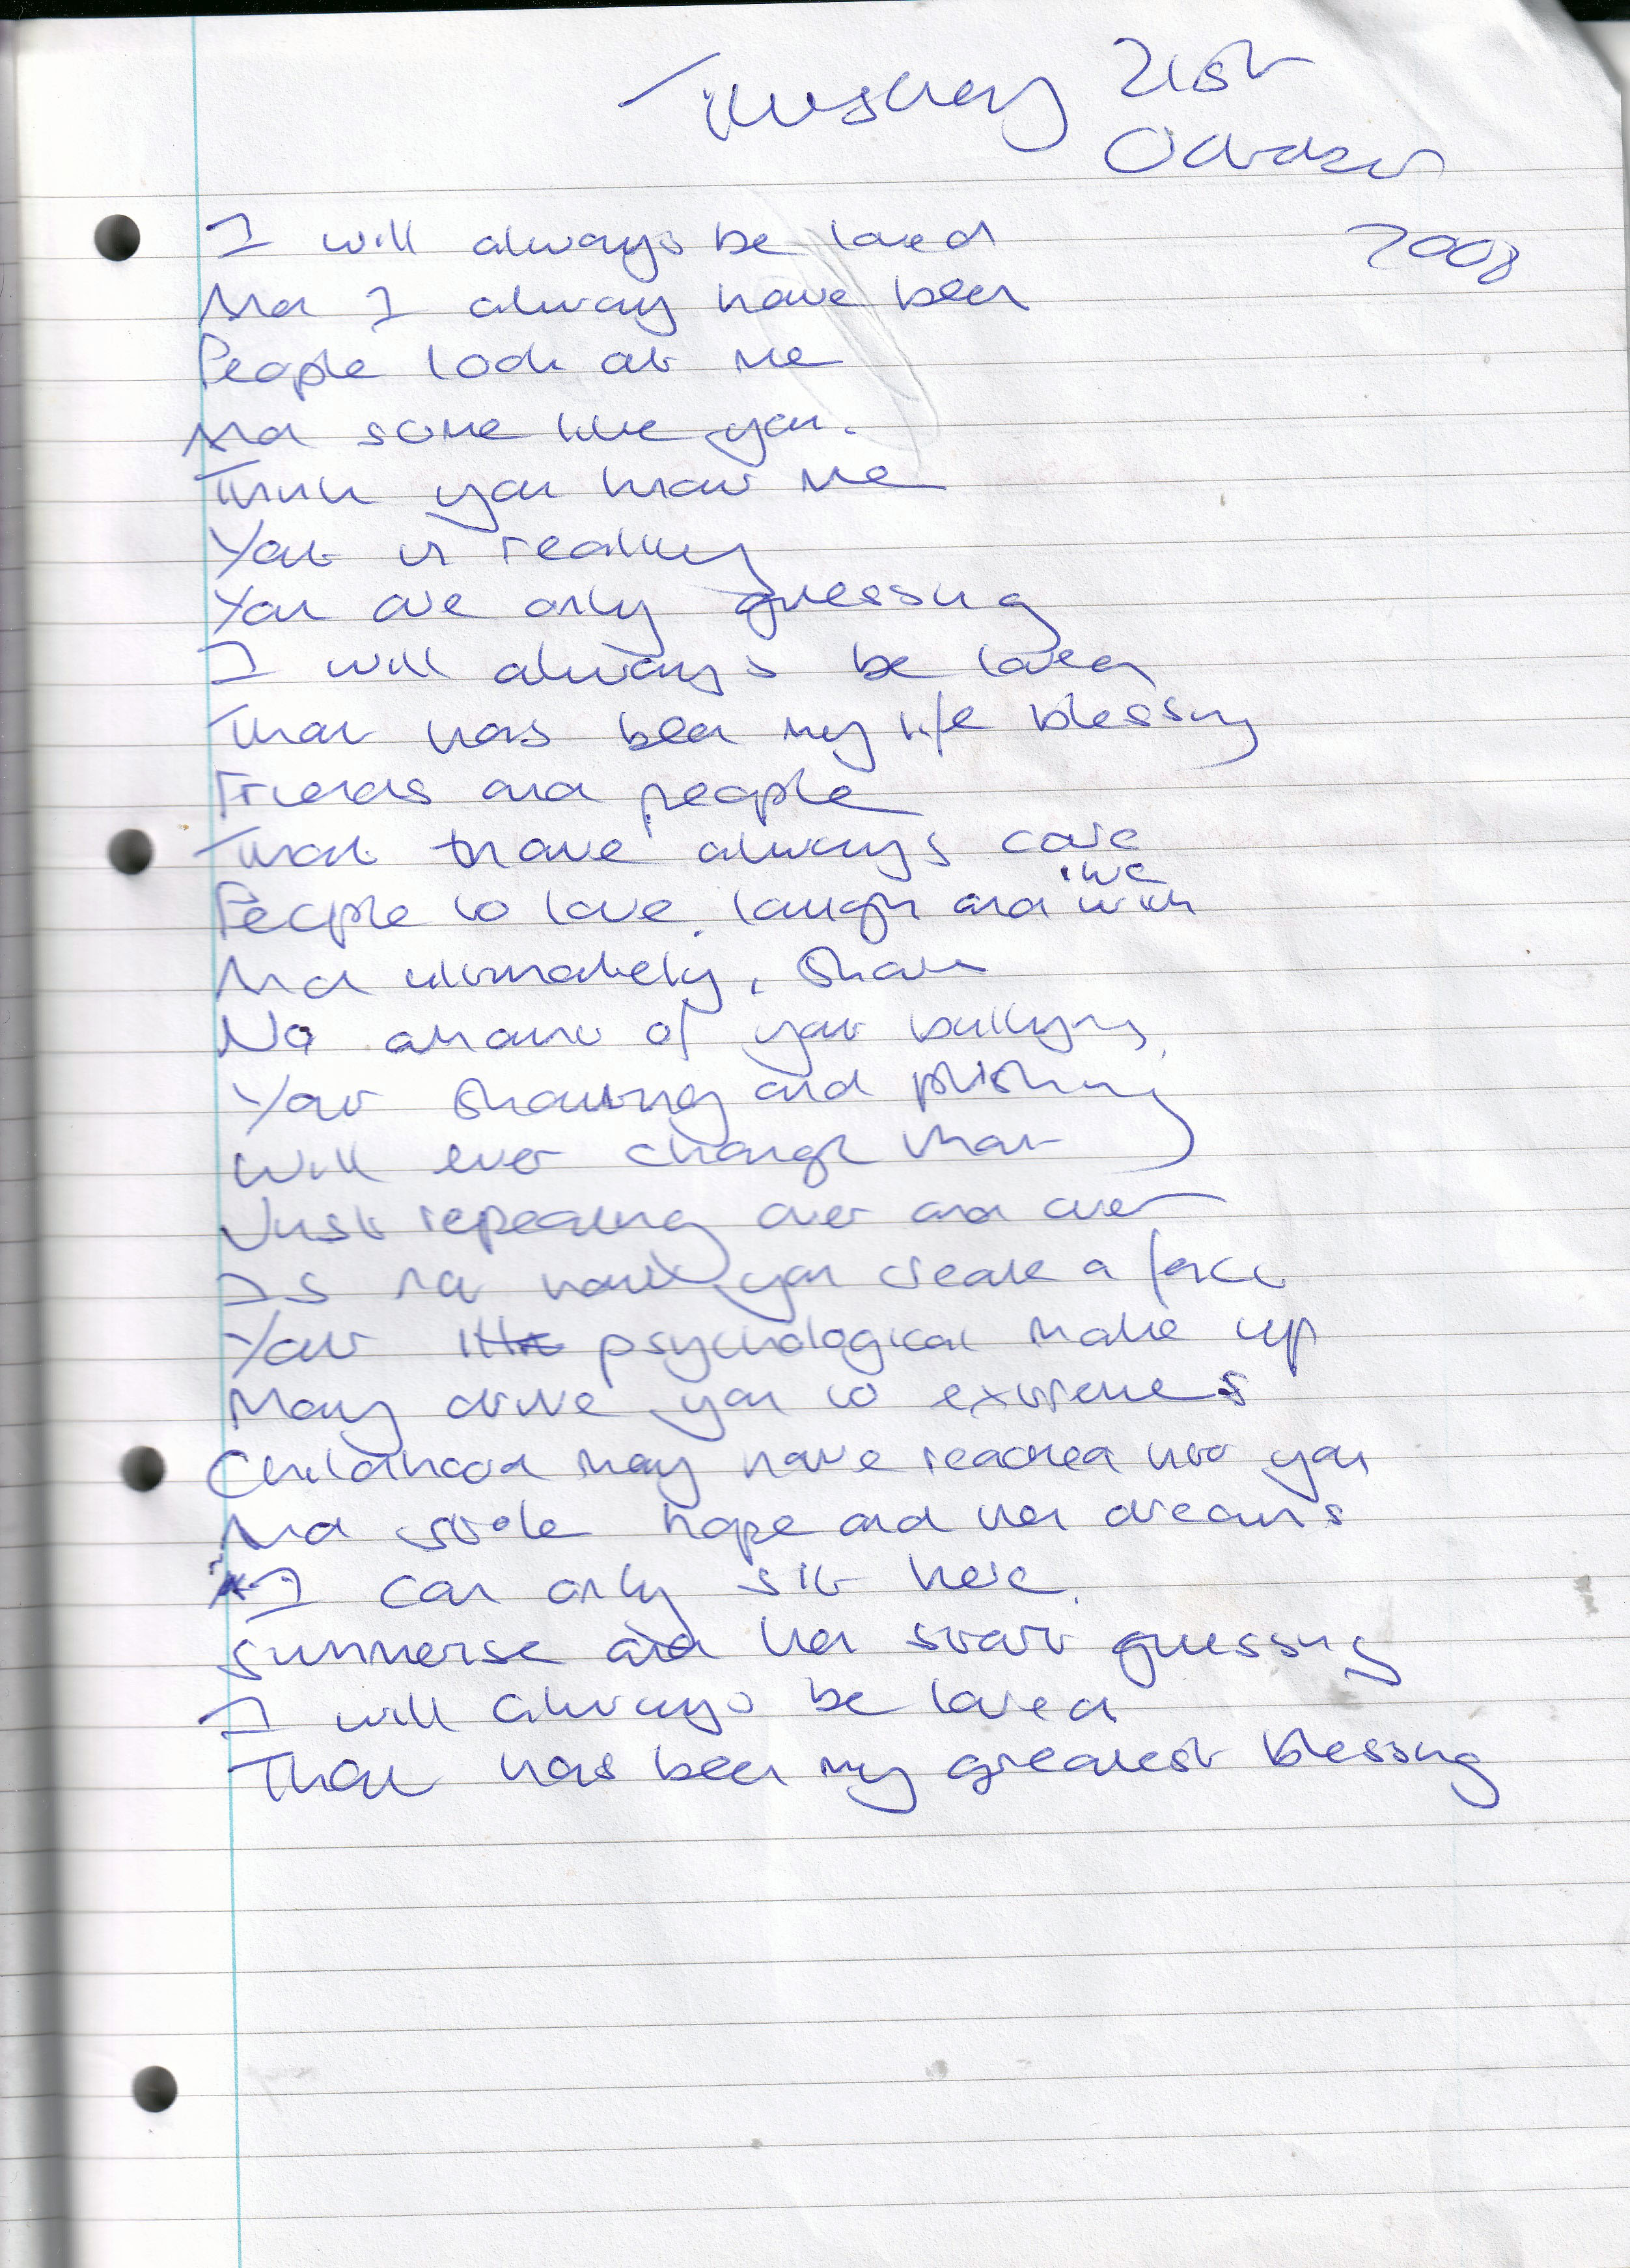 Tuesday 21st
October
2008
I will always be loved
And I always have been
People look at me
And some like you.
Think you know me
But in reality
You are only guessing
I will always be loved
That has been my life blessing
Friends and people
That have always care
live
People to love, laugh and with
And ultimately, share
No amount of your bullying,
Your shouting and pushing
Will ever change that
Just repeating over and over
Is not how you create a fact
Your psychological make up
May drive you to extremes
Childhood may have reached into you
And stole hope and then dreams
I can only sit here,
Summerise and then start guessing
I will always be loved
That has been my greatest blessing